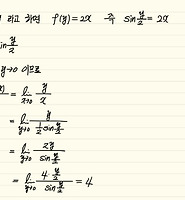 라고 하면 f(y) = 2x 즉 sin y/2 = 2x
sin y/x
y→0 이므로
= lim x→0 y/x
= lim y→0 y / (1/2 sin y/2)
= lim y→0 2y / sin y/2
= lim y→0 4 y/2 / sin y/2 = 4